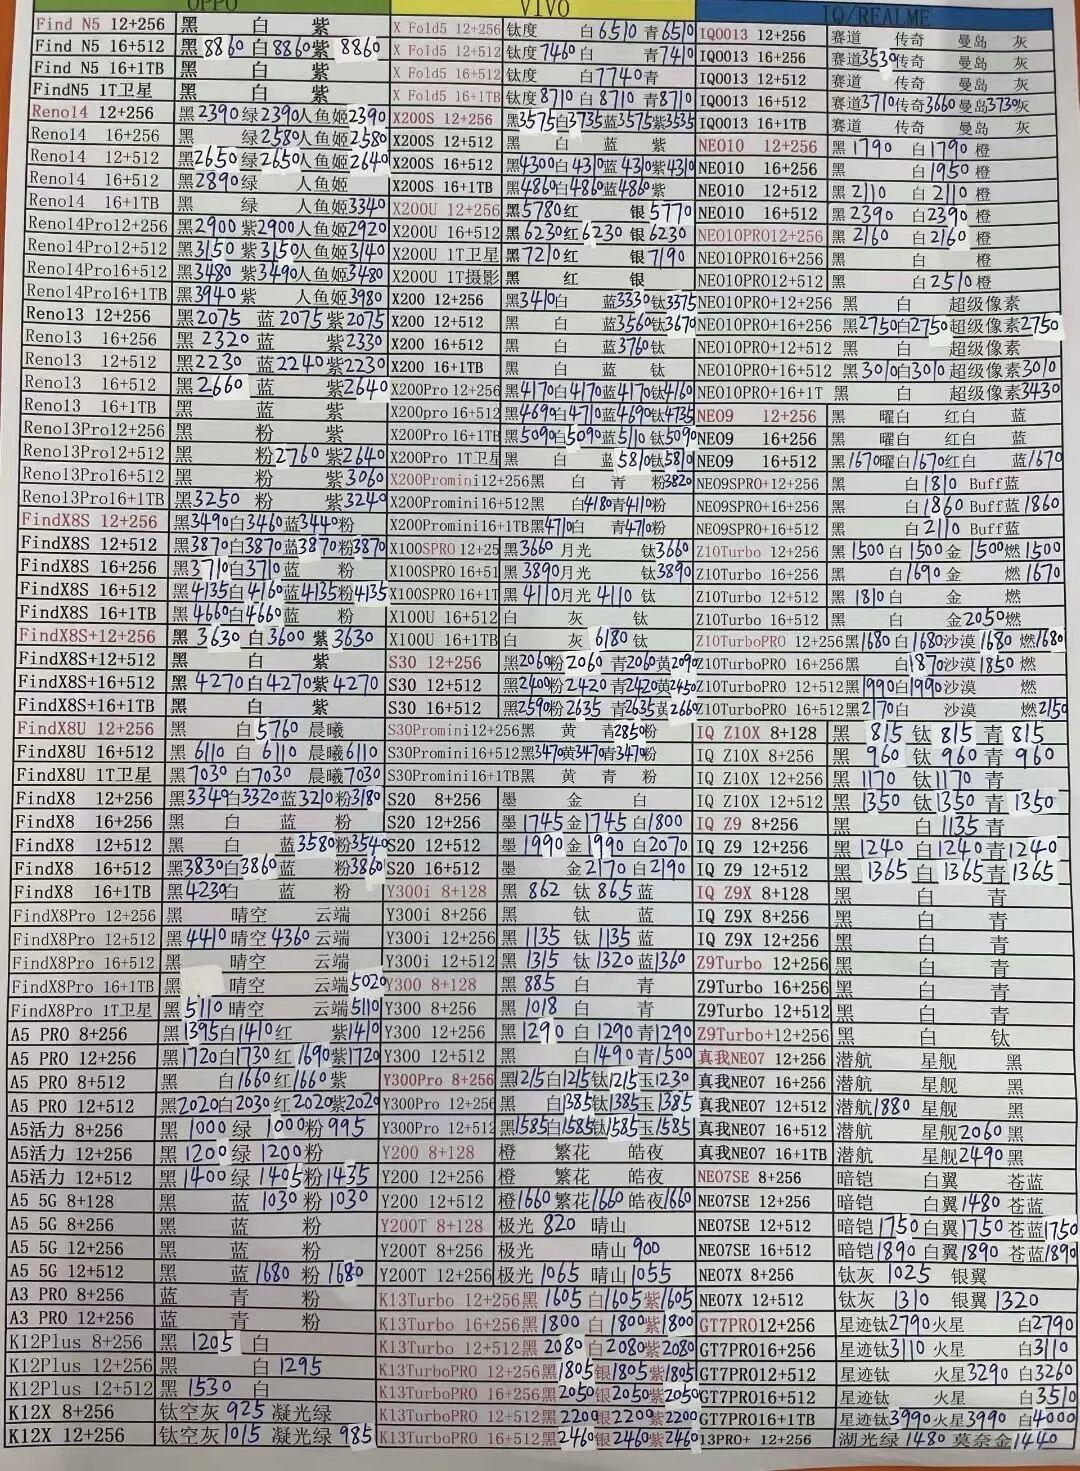 OPPO
Find N5 12+256 黑 白 紫
Find N5 16+512 黑8860 白8860紫 8860
Find N5 16+1TB 黑 白 紫
FindN5 1T卫星 黑 白 紫
Reno14 12+256 黑2390绿2390人鱼姬2390
Reno14 16+256 黑 绿2580人鱼姬2580
Reno14 12+512 黑2650绿2650人鱼姬2640
Reno14 16+512 黑2890绿 人鱼姬
Reno14 16+1TB 黑 绿 人鱼姬3340
Reno14Pro12+256 黑2900 紫2900人鱼姬2920
Reno14Pro12+512 黑3150 紫3150人鱼姬3140
Reno14Pro16+512 黑3480 紫3490人鱼姬3480
Reno14Pro16+1TB 黑3940紫 人鱼姬3980
Reno13 12+256 黑2075 蓝2075紫2075
Reno13 16+256 黑2320 蓝 紫2330
Reno13 12+512 黑2230 蓝2240紫2230
Reno13 16+512 黑2660 蓝 紫2640
Reno13 16+1TB 黑 蓝 紫
Reno13Pro12+256 黑 粉 紫
Reno13Pro12+512 黑 粉2760紫2640
Reno13Pro16+512 黑 粉 紫3060
Reno13Pro16+1TB 黑3250 粉 紫3240
FindX8S 12+256 黑3490白3460蓝3440粉
FindX8S 12+512 黑3870白3870蓝3870粉3870
FindX8S 16+256 黑3710白3710蓝 粉
FindX8S 16+512 黑4135白4160蓝4135粉4135
FindX8S 16+1TB 黑4660白4660蓝 粉
FindX8S+12+256 黑 3630 白3600 紫3630
FindX8S+12+512 黑 白 紫
FindX8S+16+512 黑 4270白4270紫4270
FindX8S+16+1TB 黑 白 紫
FindX8U 12+256 黑 白5760 晨曦
FindX8U 16+512 黑 6110 白 6110 晨曦6110
FindX8U 1T卫星 黑7030 白7030 晨曦7030
FindX8 12+256 黑3349白3320蓝3210粉3180
FindX8 16+256 黑 白 蓝 粉
FindX8 12+512 黑 白 蓝3580粉3540
FindX8 16+512 黑3830白3860蓝 粉3860
FindX8 16+1TB 黑4230白 蓝 粉
FindX8Pro 12+256 黑 晴空 云端
FindX8Pro 12+512 黑4410晴空4360云端
FindX8Pro 16+512 黑 晴空 云端
FindX8Pro 16+1TB 黑 晴空 云端5020
FindX8Pro 1T卫星 黑5110晴空 云端5110
A5 PRO 8+256 黑1395白1410红 紫1410
A5 PRO 12+256 黑1720白1730红1690紫1720
A5 PRO 8+512 黑 白1660红1660紫
A5 PRO 12+512 黑2020白2030红2020紫2020
A5活力 8+256 黑 1000 绿 1000粉995
A5活力 12+256 黑1200绿1200粉
A5活力 12+512 黑1400绿 1405粉1435
A5 5G 8+128 黑 蓝 1030粉1030
A5 5G 8+256 黑 蓝 粉
A5 5G 12+256 黑 蓝 粉
A5 5G 12+512 黑 蓝 1680 粉1680
A3 PRO 8+256 蓝 青 粉
A3 PRO 12+256 蓝 青 粉
K12Plus 8+256 黑 1205 白
K12Plus 12+256 黑 白 1295
K12Plus 12+512 黑 1530 白
K12X 8+256 钛空灰 925 凝光绿
K12X 12+256 钛空灰1015 凝光绿985
VIVO
X Fold5 12+256 钛度 白6510 青6510
X Fold5 12+512 钛度7460 白 青7410
X Fold5 16+512 钛度 白7740青
X Fold5 16+1TB 钛度8710 白8710 青8710
X200S 12+256 黑3575白3735蓝3575紫3535
X200S 12+512 黑 白 蓝 紫
X200S 16+512 黑4300白4310蓝4310紫4310
X200S 16+1TB 黑4860白4860蓝4860紫
X200U 12+256 黑5780红 银5770
X200U 16+512 黑6230红6230 银6230
X200U 1T卫星 黑7210红 银7190
X200U 1T摄影 黑 红 银
X200 12+256 黑3410白 蓝3330钛3375
X200 12+512 黑 白 蓝3560钛3670
X200 16+512 黑 白 蓝3760钛
X200 16+1TB 黑 白 蓝 钛
X200Pro 12+256 黑4170白4170蓝4170钛4160
X200pro 16+512 黑4690白4710蓝4690钛4735
X200Pro 16+1TB 黑5090白5090蓝5110钛5090
X200Pro 1T卫星 黑 白 蓝5810钛5810
X200Promini12+256 黑 白 青 粉3820
X200Promini16+512 黑 白4180青4110粉
X200Promini16+1TB 黑4710白 青4710粉
X100SPRO 12+25 黑3660月光 钛3660
X100SPRO 16+51 黑3890月光 钛3890
X100SPRO 16+1T 黑4110月光4110钛
X100U 16+512 白 灰 钛
X100U 16+1TB 白 灰 6180 钛
S30 12+256 黑2060粉2060青2060黄2090
S30 12+512 黑2400粉2420青2420黄2450
S30 16+512 黑2590粉2635青2635黄2660
S30Promini12+256 黑 黄 青2850粉
S30Promini16+512 黑3470黄3470青3470粉
S30Promini16+1TB 黑 黄 青 粉
S20 8+256 墨 金 白
S20 12+256 墨 1745金1745白1800
S20 12+512 墨 1990金1990 白2070
S20 16+512 墨 金2170白2190
Y300i 8+128 黑 862 钛 865蓝
Y300i 8+256 黑 钛 蓝
Y300i 12+256 黑1135 钛 1135蓝
Y300i 12+512 黑1315 钛 1320蓝1360
Y300 8+128 黑 885 白 青
Y300 8+256 黑 1018 白 青
Y300 12+256 黑1290 白1290青1290
Y300 12+512 黑 白1490青1500
Y300Pro 8+256 黑1215白1215钛1215玉1230
Y300Pro 12+256 黑 白1385钛1385玉1385
Y300Pro 12+512 黑1585白1585钛1585玉1585
Y200 8+128 橙 繁花 皓夜
Y200 12+256 橙 繁花 皓夜
Y200 12+512 橙1660繁花1660皓夜1660
Y200T 8+128 极光 820 晴山
Y200T 8+256 极光 晴山900
Y200T 12+256 极光1065 晴山1055
K13Turbo 12+256 黑 1605 白1605紫1605
K13Turbo 16+256 黑1800白1800紫1800
K13Turbo 12+512 黑 2080白2080紫2080
K13TurboPRO 12+256 黑1805银1805紫1805
K13TurboPRO 16+256 黑2050银2050紫2050
K13TurboPRO 12+512 黑2200银2200紫2200
K13TurboPRO 16+512 黑2460银2460紫2460
IQ/REALME
IQOO13 12+256 赛道 传奇 曼岛 灰
IQOO13 16+256 赛道3530传奇 曼岛 灰
IQOO13 12+512 赛道 传奇 曼岛 灰
IQOO13 16+512 赛道3710传奇3660曼岛3730灰
IQOO13 16+1TB 赛道 传奇 曼岛 灰
NEO10 12+256 黑 1790 白1790橙
NEO10 16+256 黑 白1950橙
NEO10 12+512 黑 2110 白2110橙
NEO10 16+512 黑2390 白2390橙
NEO10PRO12+256 黑 2160 白2160 橙
NEO10PRO16+256 黑 白 橙
NEO10PRO12+512 黑 白2510橙
NEO10PRO+12+256 黑 白 超级像素
NEO10PRO+16+256 黑2750白2750超级像素2750
NEO10PRO+12+512 黑 白 超级像素
NEO10PRO+16+512 黑3010白3010超级像素3010
NEO10PRO+16+1T 黑 白 超级像素3430
NEO9 12+256 黑 曜白 红白 蓝
NEO9 16+256 黑 曜白 红白 蓝
NEO9 16+512 黑1670曜白1670红白 蓝1670
NEO9SPRO+12+256 黑 白1810 Buff蓝
NEO9SPRO+16+256 黑 白1860 Buff蓝1860
NEO9SPRO+16+512 黑 白2110 Buff蓝
Z10Turbo 12+256 黑 1500白1500金1500燃1500
Z10Turbo 16+256 黑 白1690金 燃1670
Z10Turbo 12+512 黑1810白 金 燃
Z10Turbo 16+512 黑 白 金2050燃
Z10TurboPRO 12+256 黑1680白1680沙漠1680燃1680
Z10TurboPRO 16+256 黑 白1870沙漠1850燃
Z10TurboPRO 12+512 黑1990白1990沙漠 燃
Z10TurboPRO 16+512 黑2170白 沙漠 燃2150
IQ Z10X 8+128 黑 815 钛 815 青 815
IQ Z10X 8+256 黑 960 钛 960青 960
IQ Z10X 12+256 黑1170 钛1170青
IQ Z10X 12+512 黑1350 钛1350 青1350
IQ Z9 8+256 黑 白1135青
IQ Z9 12+256 黑1240白1240青1240
IQ Z9 12+512 黑 1365白1365青1365
IQ Z9X 8+128 黑 白 青
IQ Z9X 8+256 黑 白 青
IQ Z9X 12+256 黑 白 青
Z9Turbo 12+256 黑 白 青
Z9Turbo 16+256 黑 白 青
Z9Turbo 12+512 黑 白 青
Z9Turbo+12+256 黑 白 钛
真我NEO7 12+256 潜航 星舰 黑
真我NEO7 16+256 潜航 星舰 黑
真我NEO7 12+512 潜航1880 星舰 黑
真我NEO7 16+512 潜航 星舰2060黑
真我NEO7 16+1TB 潜航 星舰2490黑
NEO7SE 8+256 暗铠 白翼 苍蓝
NEO7SE 12+256 暗铠 白翼1480苍蓝
NEO7SE 12+512 暗铠1750白翼1750苍蓝1750
NEO7SE 16+512 暗铠1890白翼1890 苍蓝1890
NEO7X 8+256 钛灰 1025 银翼
NEO7X 12+512 钛灰 1310 银翼1320
GT7PRO12+256 星迹钛2790火星 白2790
GT7PRO16+256 星迹钛3110火星 白3110
GT7PRO12+512 星迹钛 火星3290白3260
GT7PRO16+512 星迹钛 火星 白3510
GT7PRO16+1TB 星迹钛3990火星3990白4000
13PRO+ 12+256 湖光绿1480莫奈金1440